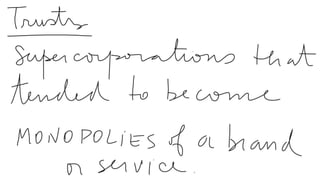 Trusts
Supercorporations that
tended to become
MONOPOLIES of a brand
or service.